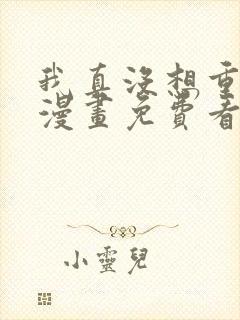 我真没想重
漫畫免費看
小靈兒